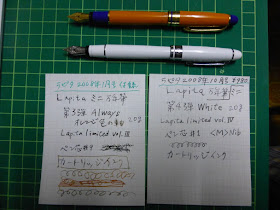 ラピタ 2008年1月号付録
Lapita ミニ万年筆
第3弾 Always
オレンジ色の 20g
Lapita limited vol.III
ペン芯#1
カートリッジインク
ラピタ 2008年10月号 ¥980
Lapita 万年筆ミニ
第4弾 White 20g
Lapita limited vol.III
ペン芯#1 <M>Nib
カートリッジインク